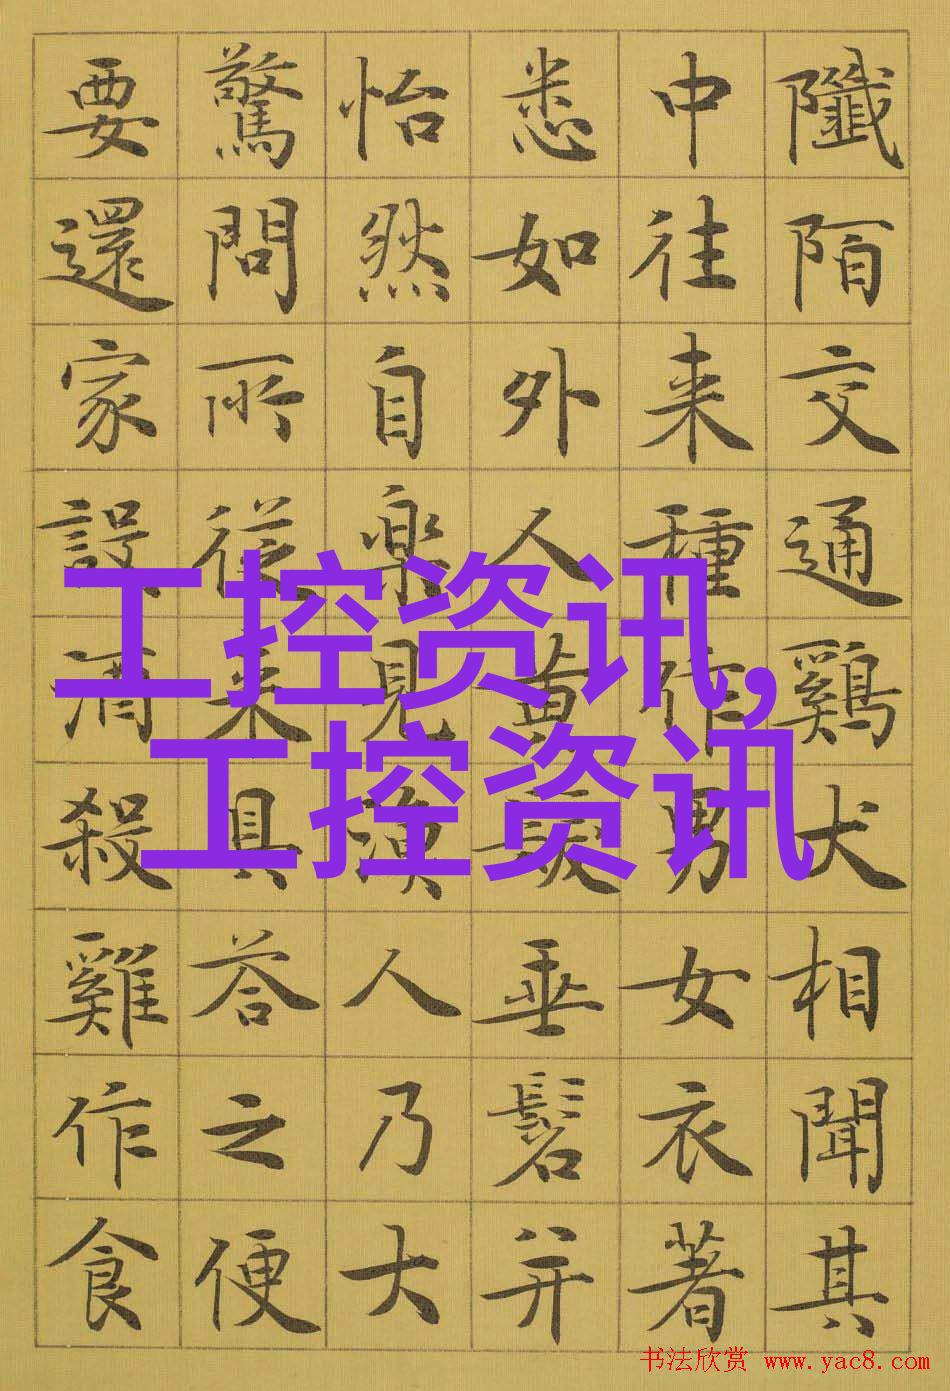 陌交通鷄犬相聞其
中往来種作男女衣著
悉如外人黄髮垂髫并
怡然自楽見漁人乃大
驚問所從来具荅之便
要還家設酒殺雞作食
工控资讯,
工控资讯
书法欣赏 www.yac8.com